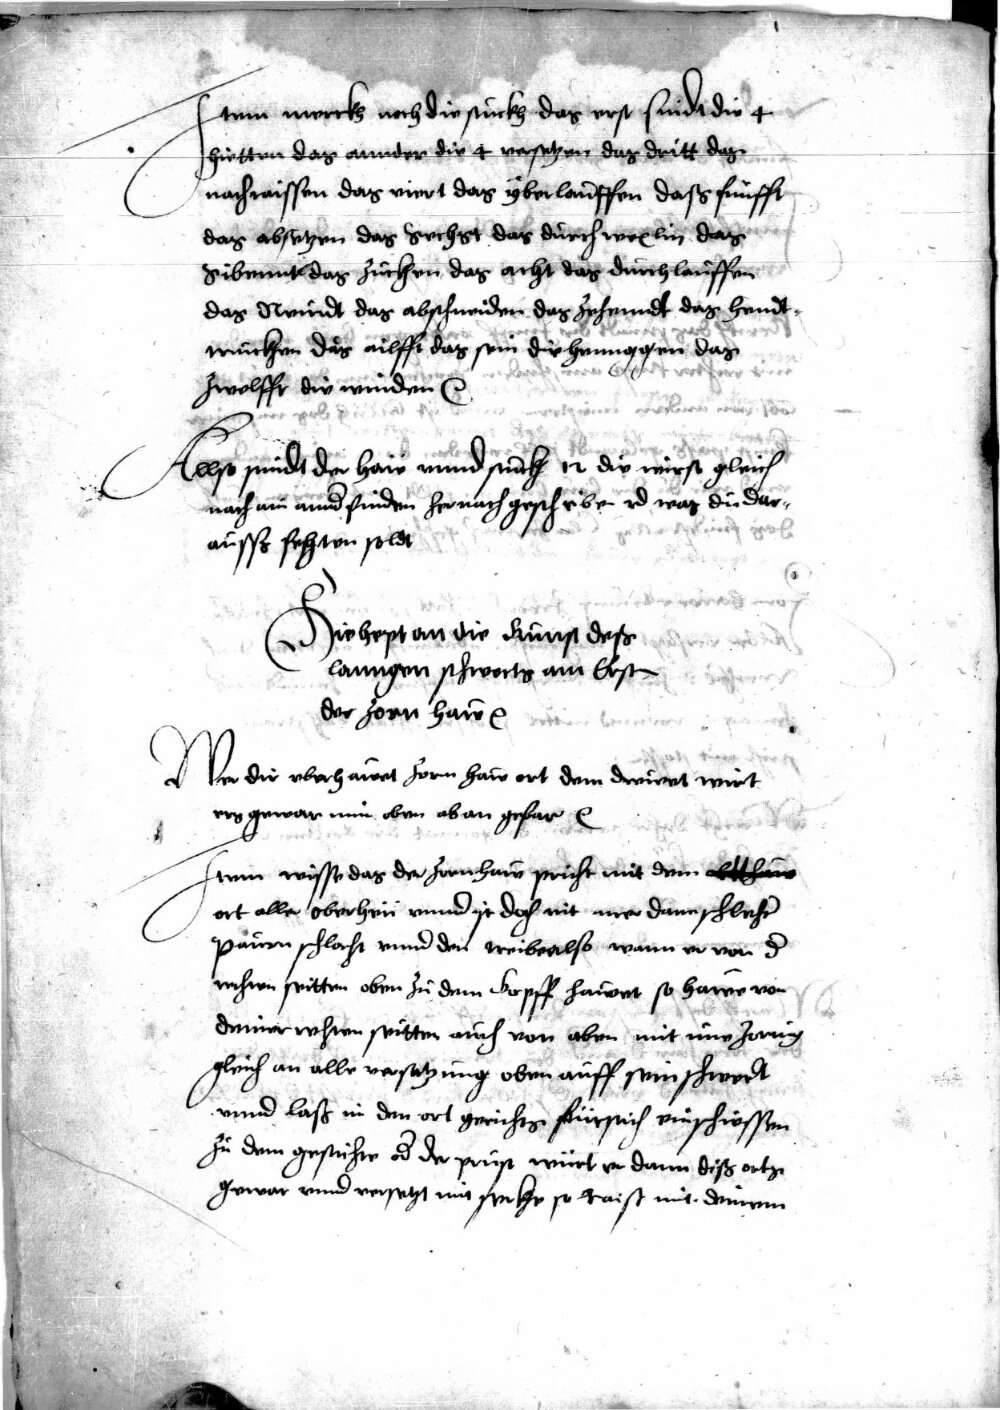 Item merckh noch die stuckh das erst sindt die 4
hietten das annder die 4 versetzen das dritt das
nachraissen das viert das yberlauffen dass funfft
das absetzen das sechst das durchwexlin das
sibennt das zucken das acht das durchlauffen
das Neundt das abschneiden das zehenndt das hendt-
trucken das ailfft das sein die henngen das
zwelfft die winden
Allso sindt der haw vnnd stuckh 12 die wirst gleich
nach ain annder finden hernach geschriben vnd was du dar-
auss fechten soldt
Hie hept an die Kunst dess
lanngen schwerts am Erst
der zorn haw
Wer dir oberhawet zorn haw ort dem drewet wirt
ers gewar nim oben ab an gefar
Item wisse das der zornhaw pricht mit dem
ort alle oberhew vnnd ist doch nit mer dann schlechter
paurn schlacht vnnd den treib also wann er von der
rechten seitten oben zu dem kopff hawet so hawe von
deiner rechten seitten auch von oben mit ime zornig
gleich an alle versatzung oben auff sein schwert
vnnd lass im den ort gerichtz fürsich einschiessen
zu dem gesicht oder der prust würt er dann diss ortz
gewar vnnd versetzt mit sterke so raist mit deinem